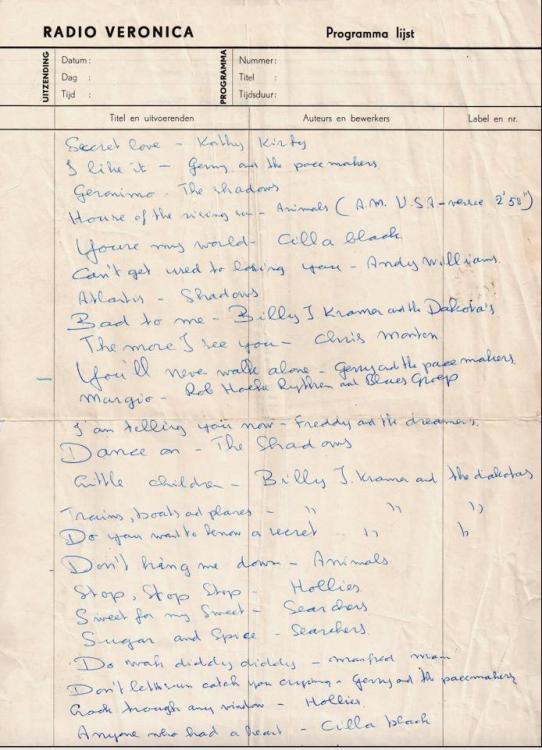 RADIO VERONICA Programma lijst
UITZENDING Datum : PROGRAMMA Nummer:
Dag : Titel :
Tijd : Tijdsduur:
Titel en uitvoerenden Auteurs en bewerkers Label en nr.
Secret love - Kathy Kirby
I like it - Gerry and the pacemakers
Geronimo - The shadows
House of the rising sun - Animals (A.M. U.S.A - versie 2'58")
Youre my world - Cilla black
Can't get used to losing you - Andy Williams.
Atlantis - Shadows
Bad to me - Billy J Kramer and the Dakota's
The more I see you - Chris Monten
You'll never walk alone - Gerry and the pacemakers.
Margio - Rob Hoeke Rythm and Blues Groep
I am telling you now - Freddy and the dreamers.
Dance on - The Shadows
Little children - Billy J. Kramer and the dakotas
Trains, boats and planes - " " "
Do you want to know a secret .. " "
Don't bring me down - Animals
Stop, Stop Stop - Hollies
Sweet for my Sweet - Searchers
Sugar and Spice - Searchers.
Do wah diddy diddy - manfred man
Don't let the sun catch you crying - Gerry and the pacemakers
Look trough any window - Hollies
Anyone who had a heart - Cilla black